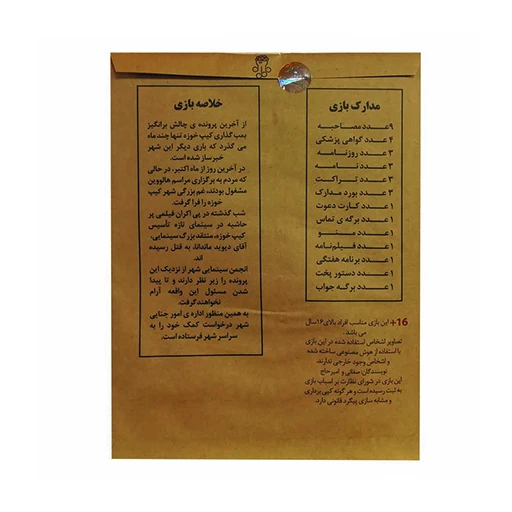 مدارک بازی
۹عدد مصاحبه
۴ عدد گواهی پزشکی
۳ عدد روزنامه
۳ عدد نامه
۳ عدد تراکت
۳ عدد بورد مدارک
۱ عدد کارت دعوت
۱ عدد برگه ی تماس
۱ عدد منو
۱ عدد فیلم‌نامه
۱ عدد برنامه هفتگی
۱ عدد دستور پخت
۱ عدد برگه جواب
خلاصه بازی
از آخرین پرونده ی چالش برانگیز
بمب گذاری کیپ خوزه تنها چند ماه
می گذرد که باری دیگر این شهر
خبرساز شده است.
در آخرین روز از ماه اکتبر، در حالی
که مردم به برگزاری مراسم هالووین
مشغول بودند، غم بزرگی شهر کیپ
خوزه را فرا گرفت.
شب گذشته در پی اکران فیلمی پر
حاشیه در سینمای تازه تأسیس
کیپ خوزه، منتقد بزرگ سینمایی،
آقای دیوید ماندانا، به قتل رسیده
اند.
انجمن سینمایی شهر از نزدیک این
پرونده را زیر نظر دارند و تا پیدا
شدن مسئول این واقعه آرام
نخواهند گرفت.
به همین منظور اداره ی امور جنایی
شهر درخواست کمک خود را به
سراسر شهر فرستاده است.
16+ این بازی مناسب افراد بالای ۱۶ سال
می باشد.
تصاویر اشخاص استفاده شده در این بازی
با استفاده از هوش مصنوعی ساخته شده
و اشخاص وجود خارجی ندارند.
نویسندگان: صفائی و امیرحاج
این بازی در شورای نظارت بر اسباب بازی
به ثبت رسیده است و هر گونه کپی برداری
و مشابه سازی پیگرد قانونی دارد.